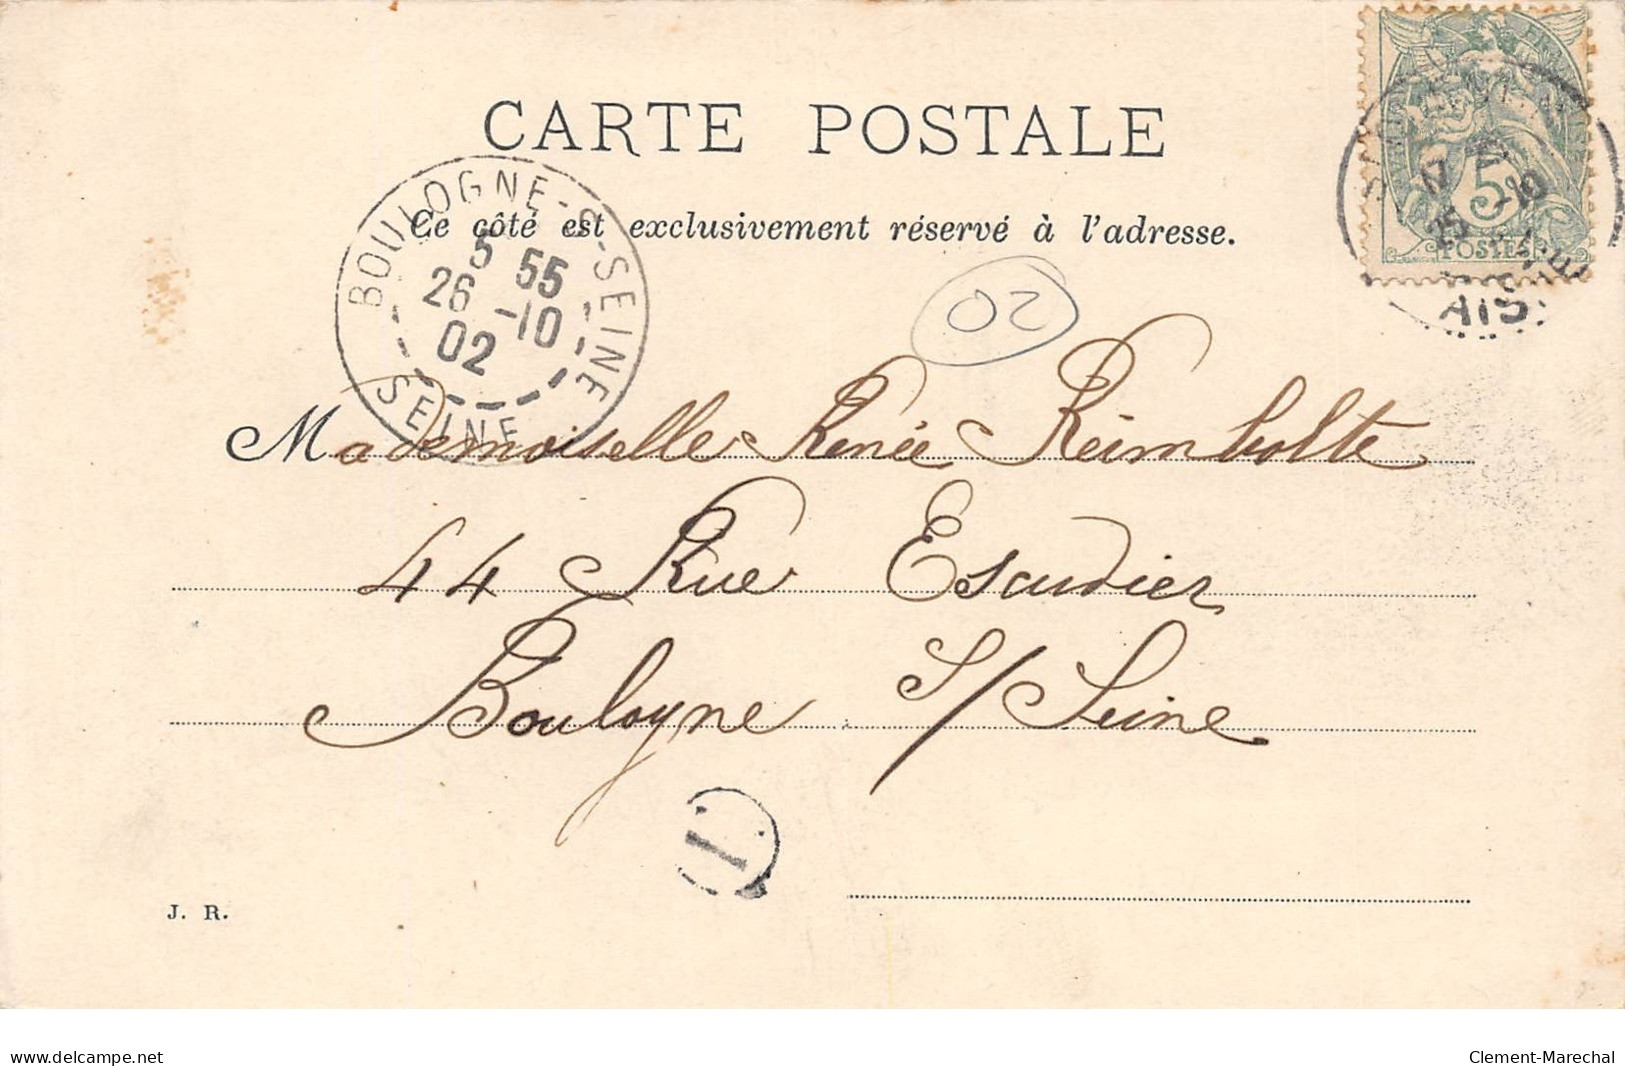 CARTE POSTALE
Ce côté est exclusivement réservé à l'adresse.
BOULOGNE-S-SEINE
5 55
26 -10
02
SEINE
5
POSTES
25 -10
AIS
20
Mademoiselle Renée Reimbolte
44 Rue Escudier
Boulogne S/ Seine
J. R.
delcampe.net
Clement-Marechal